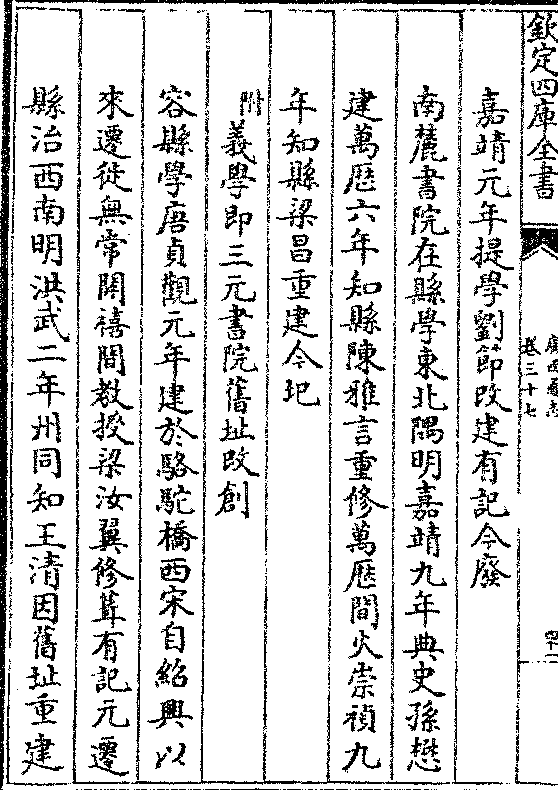 欽定四庫全書
卷三十七
嘉靖元年提學劉節改建有記今廢
南麓書院在縣學東北隅明嘉靖九年典史孫懋
建萬厯六年知縣陳雅言重修萬厯間火崇禎九
年知縣梁昌重建今圯
附義學即三元書院舊址改創
容縣學唐貞觀元年建於駱駝橋西宋自紹興以
來遷徙無常開禧間教授梁汝翼修葺有記元遷
縣治西南明洪武二年州同知王清因舊址重建